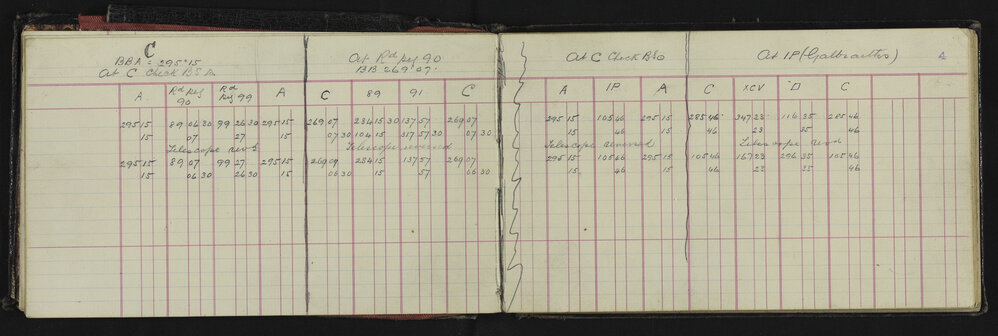 C
BBA = 295°15
At C Check B & D
A Rd peg 90 Rd peg 99 A
295 15 89 06 30 99 26 30 295 15
15 07 27 15
Telescope revd
295 15 89 07 99 27 295 15
15 06 30 26 30 15
At Rd peg 90
BB 269°07'
C 89 91 C
269 07 284 15 30 137 57 269 07
07 30 104 15 317 57 30 07 30
Telescope reversed
269 07 284 15 137 57 269 07
06 30 15 57 06 30
At C Check B & D
A IP A
295 15 105 46 295 15
15 46 15
Telescope reversed
295 15 105 46 295 15
15 46 15
At IP (Galbraiths)
4
C XCV □ C
285 46 347 23 116 35 285 46
46 23 35 46
Telescope revd
105 46 167 23 296 35 105 46
46 23 35 46